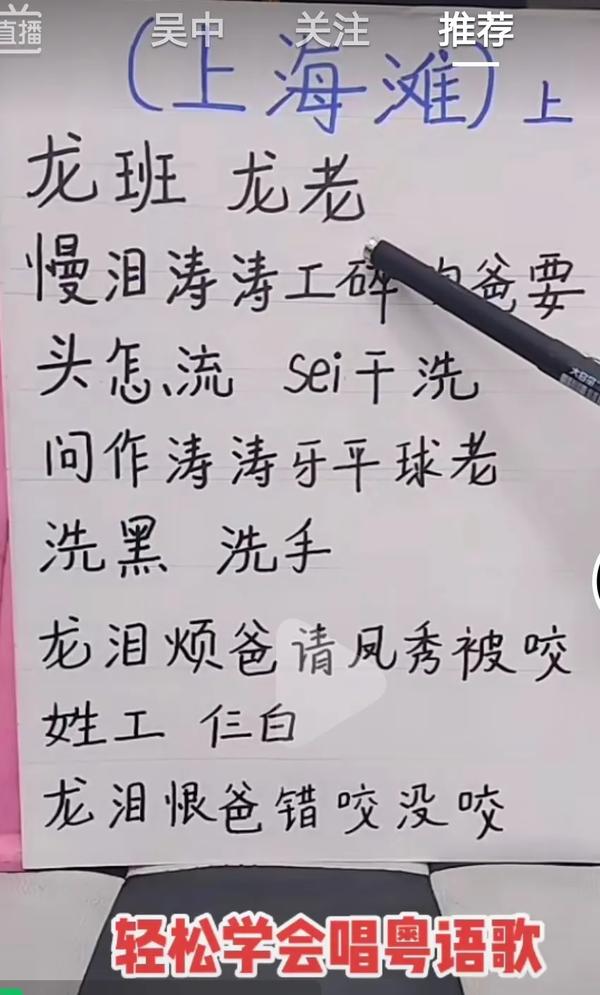 直播 吴中 关注 推荐
(上海滩)上
龙班 龙老
慢泪涛涛工碎 爸要
头怎、流 sei干洗
问作涛涛牙平球老
洗黑 洗手
龙泪烦爸请凤秀被咬
姓工 仨白
龙泪恨爸错咬没咬
轻松学会唱粤语歌